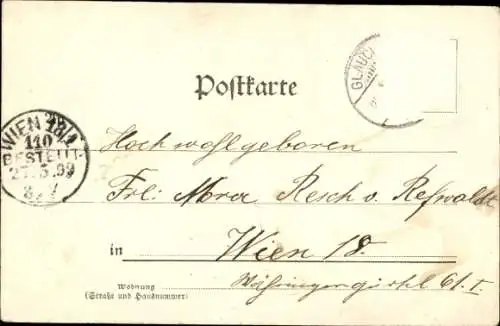 Postkarte
GLAUC
WIEN 18/1
110
BESTELLT
27.5.99
Hochwohlgeboren
Frl: Mora Resch v. Refwaldt
in Wien 18.
Wohnung
(Straße und Hausnummer)
Währingergürtl 61. I.